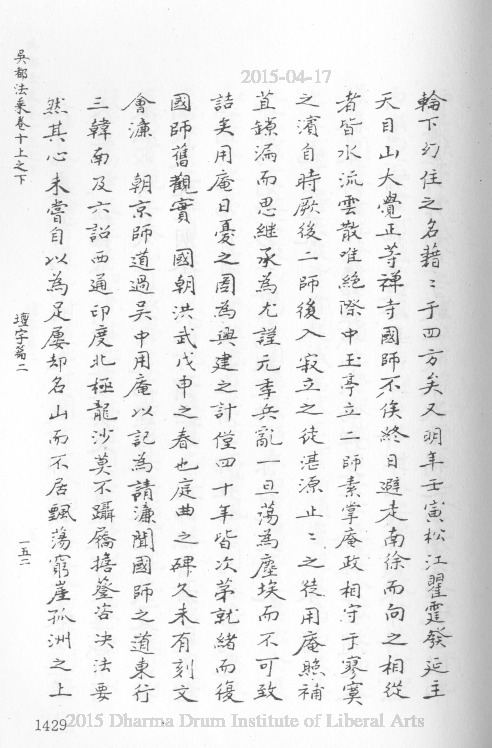 2015-04-17
輪下幻住之名藉〻于四方矣又明年壬寅松江瞿霆發延主
天目山大覺正等禪寺國師不俟終日避走南徐而向之相從
者皆水流雲散唯絕際中玉亭立二師素掌庵政相守于寥寞
之濱自時厥後二師後入寂立之徒湛源止〻之徒用庵照補
苴鏬漏而思繼承為尤謹元季兵亂一旦蕩為塵埃而不可致
詰矣用庵日憂之圖為興建之計僅四十年皆次第就緒而復
國師舊觀實　國朝洪武戊申之春也庭曲之碑久未有刻文
會濂　朝京師道過吳中用庵以記為請濂聞國師之道東行
三韓南及六詔西通印度北極龍沙莫不躡屩擔簦咨決法要
然其心未嘗自以為足屢却名山而不居飄蕩窮崖孤洲之上
吳都法乘卷十上之下　壇宇篇二　一五二
1429
2015 Dharma Drum Institute of Liberal Arts